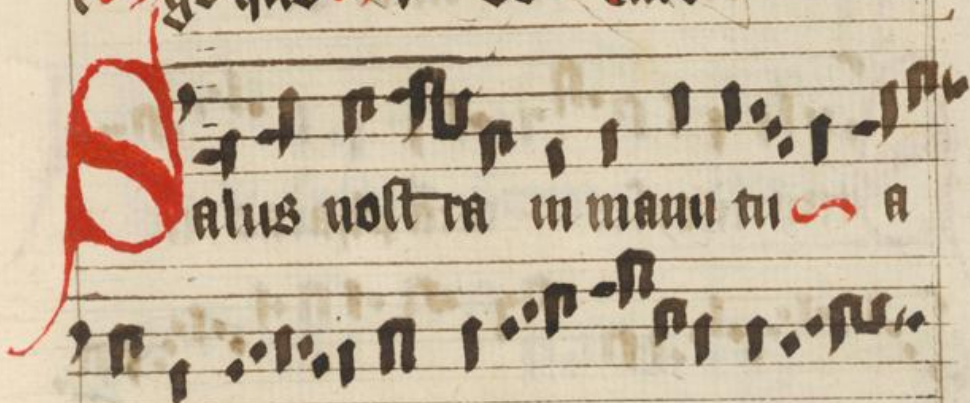 Salus nostra in manu tu a